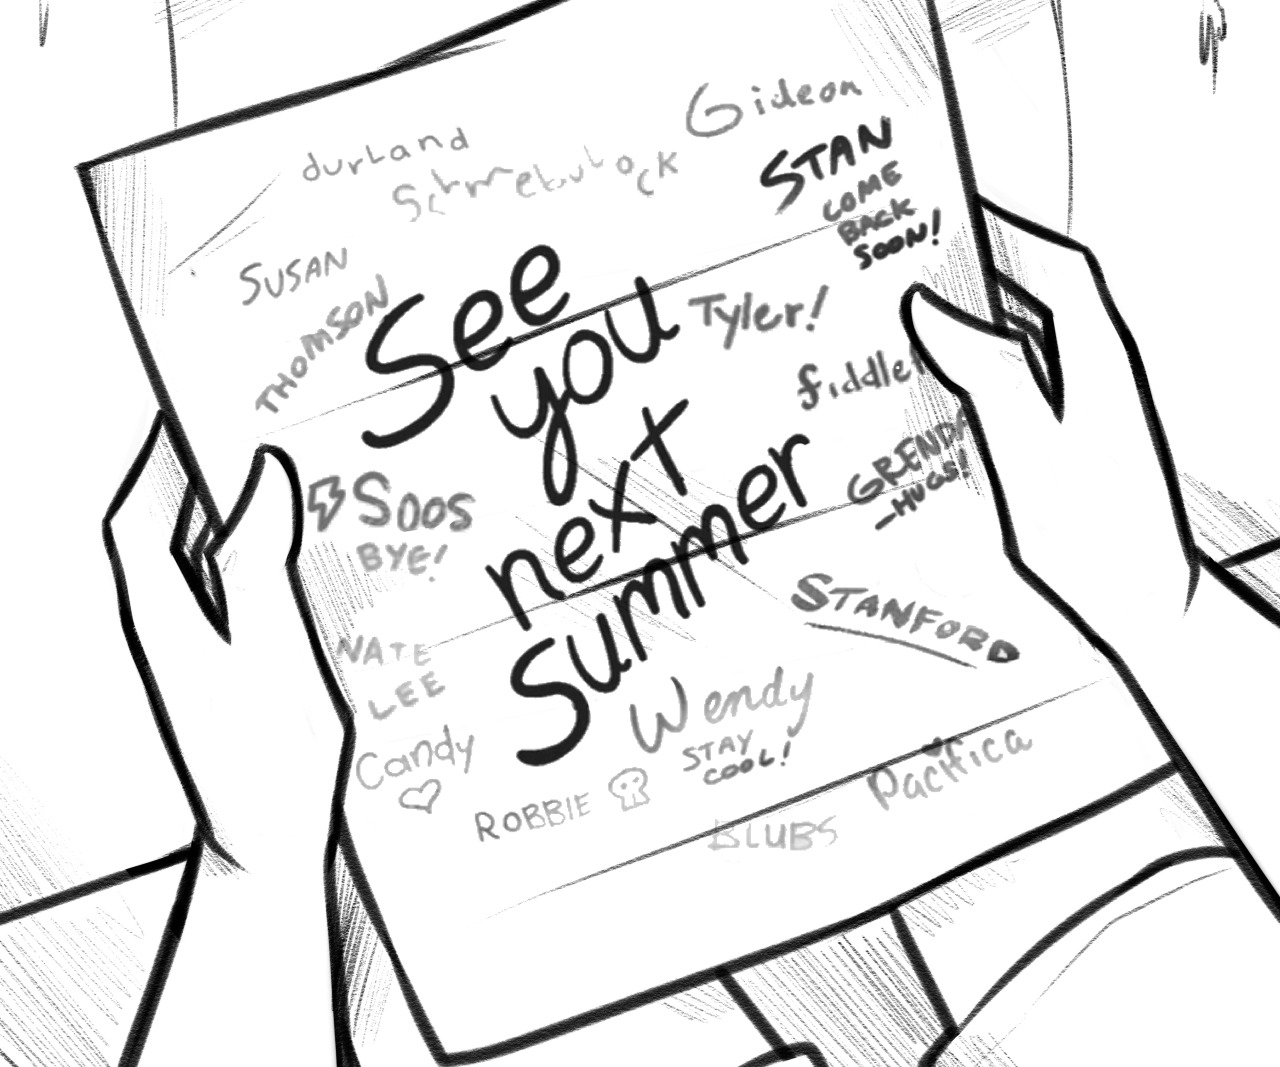 Gideon
durLand
Schmebulock
STAN
COME
BACK
SOON!
SUSAN
THOMSON
See
you
next
summer
Tyler!
fiddlef
GRENDA
-HUGS!
SOOS
BYE!
STANFORD
NATE
LEE
Wendy
STAY
COOL!
Candy
ROBBIE
Pacifica
BLUBS